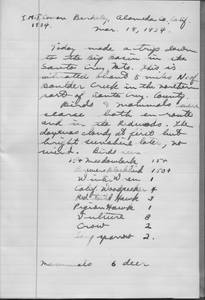 Berkeley, Alameda Co., Calif.
1934. Mar. 18, 1934.
Today made a trip down
to the Big Basin in the
Santa Cruz Mts. This is
situated about 5 miles N. of
Boulder Creek in the northern
part of Santa Cruz County.
Birds & mammals were
scarce both en route
and in the Redwoods. The
day was cloudy at first but
bright sunshine later, no
wind. Birds seen
15+ Meadowlark 15+
Brewers Blackbird 150+
Wren 1
Calif Woodpecker 4
Red-tailed Hawk 3
Pigeon Hawk 1
Vulture 8
Crow 2
Song sparrow 2.
Mammals 6 deer